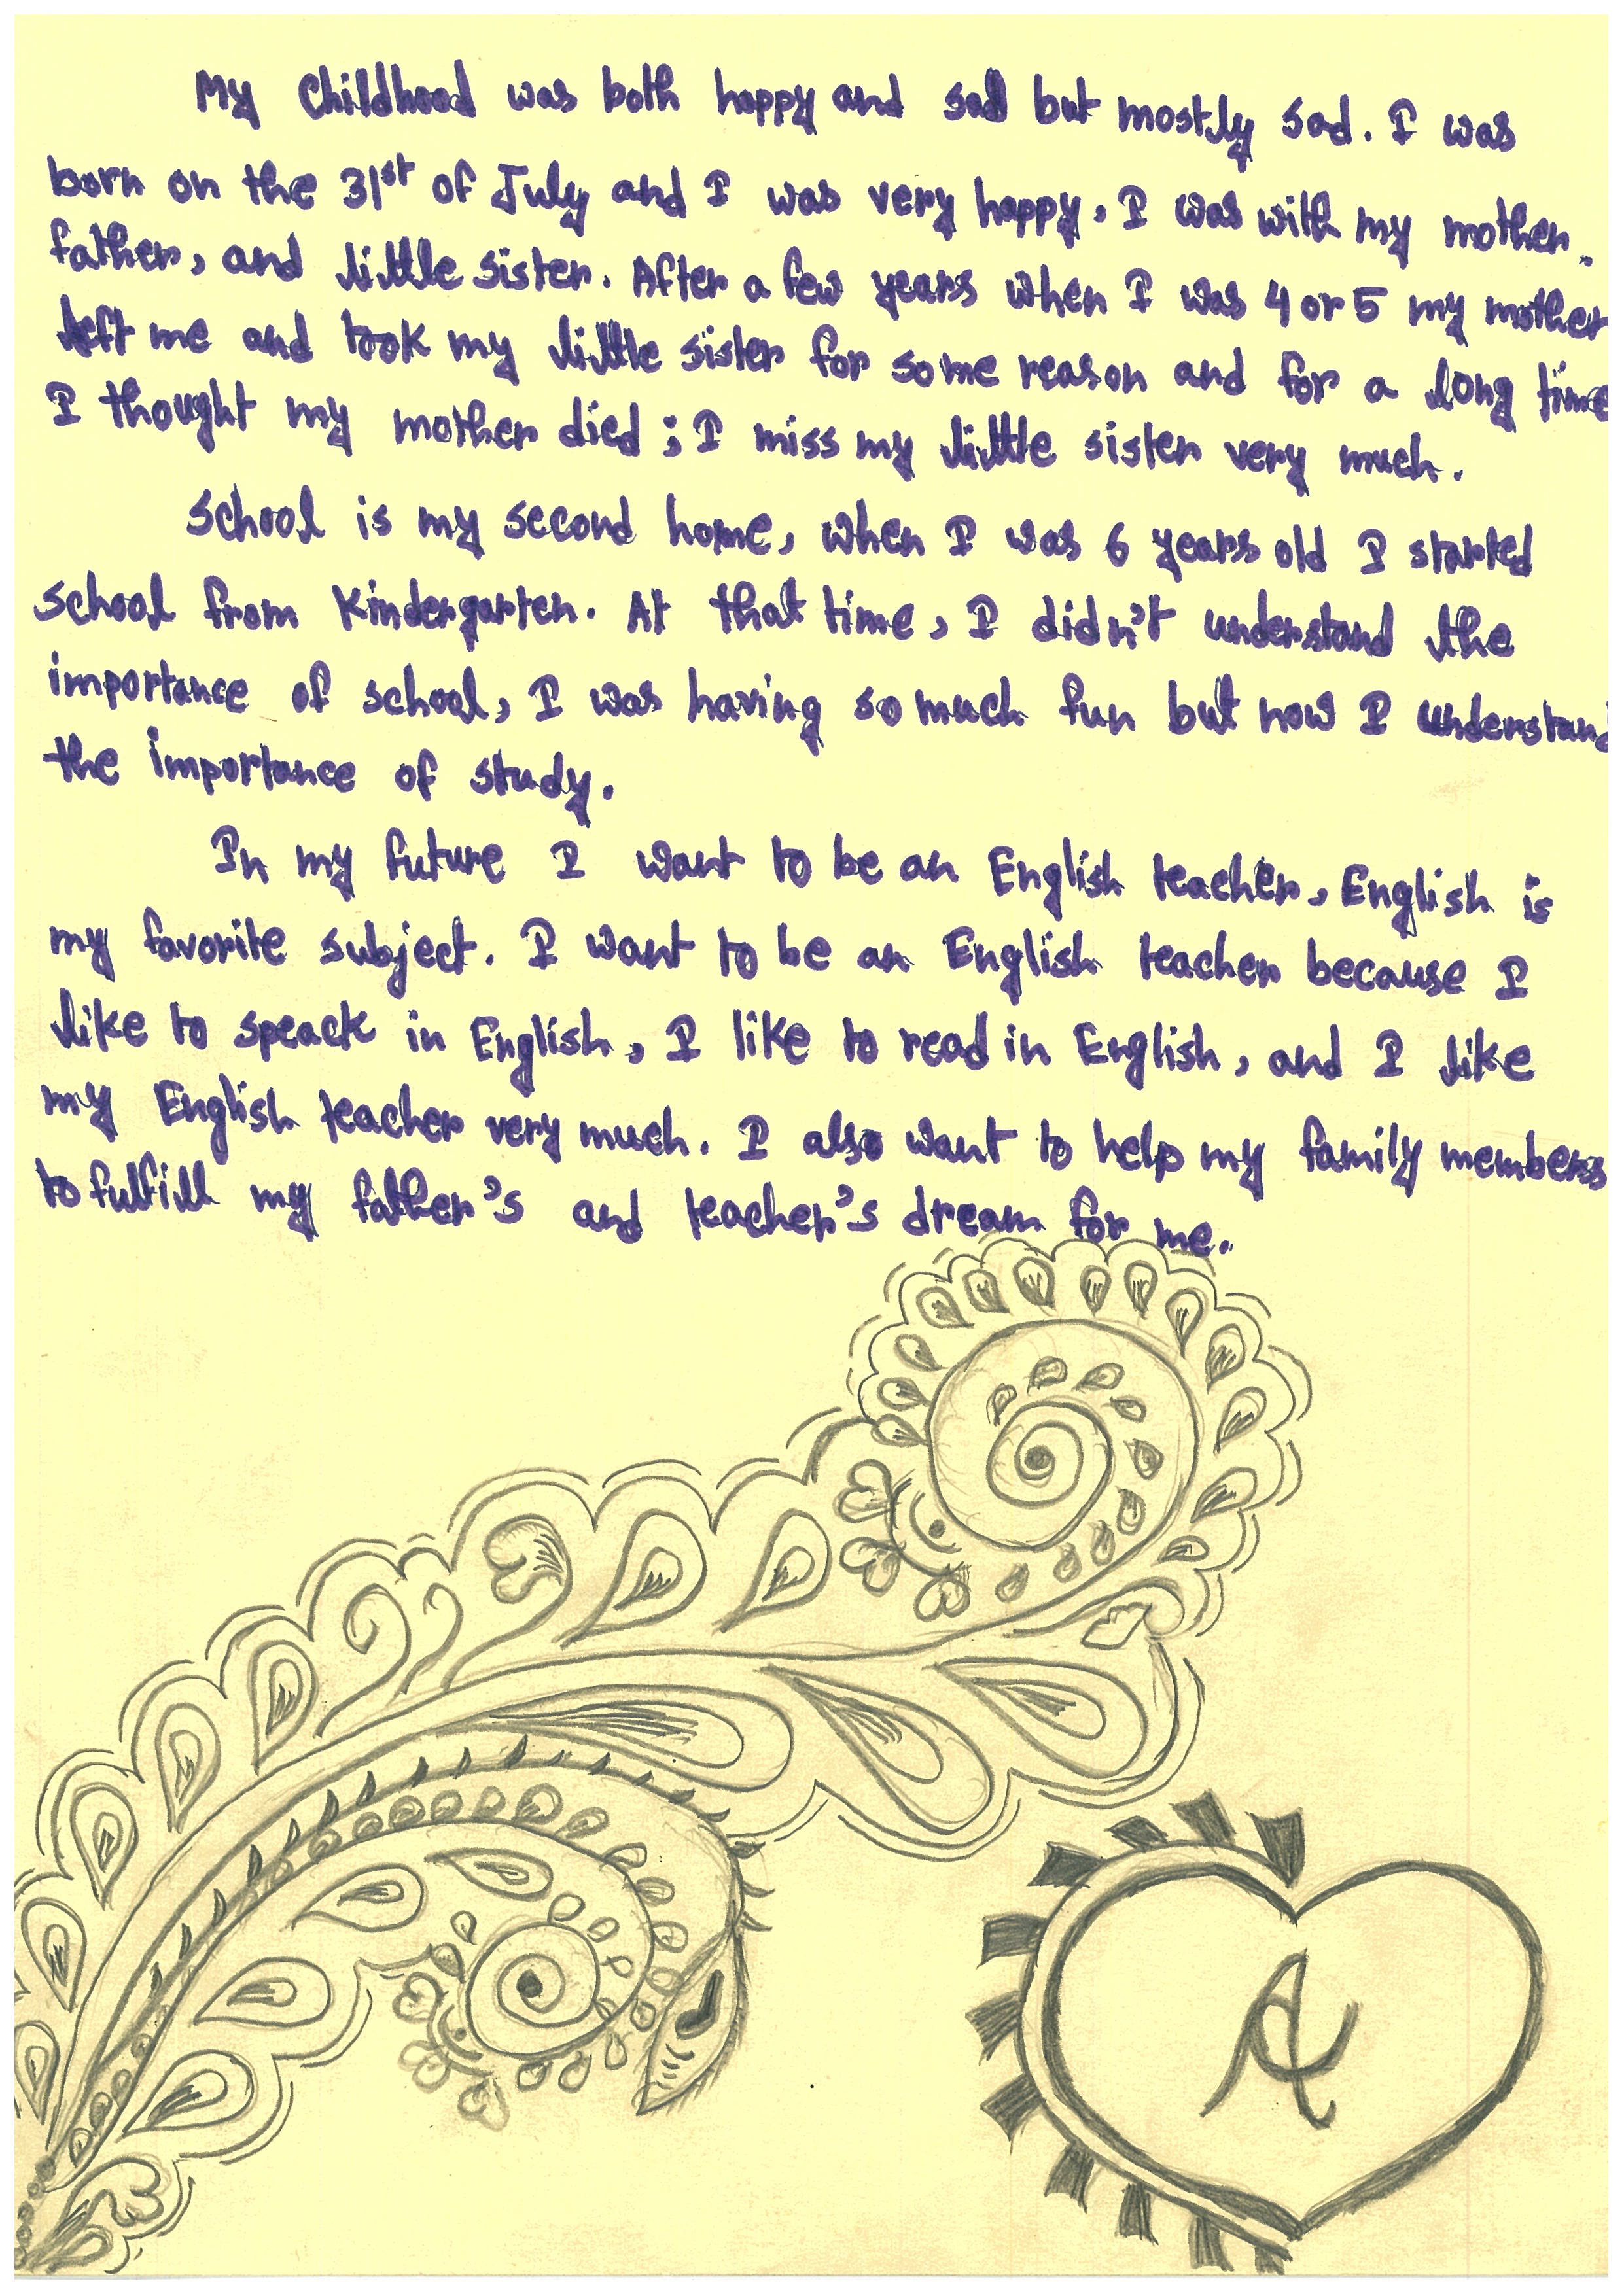 My Childhood was both happy and sad but mostly sad. I was
born on the 31st of July and I was very happy. I was with my mother,
father, and little sister. After a few years when I was 4 or 5 my mother
left me and took my little sister for some reason and for a long time
I thought my mother died; I miss my little sister very much.
School is my second home, when I was 6 years old I started
school from Kindergarten. At that time, I didn't understand the
importance of school, I was having so much fun but now I understand
the importance of study.
In my future I want to be an English teacher, English is
my favorite subject. I want to be an English teacher because I
like to speack in English, I like to read in English, and I like
my English teacher very much. I also want to help my family members
to fulfill my father's and teacher's dream for me.
A